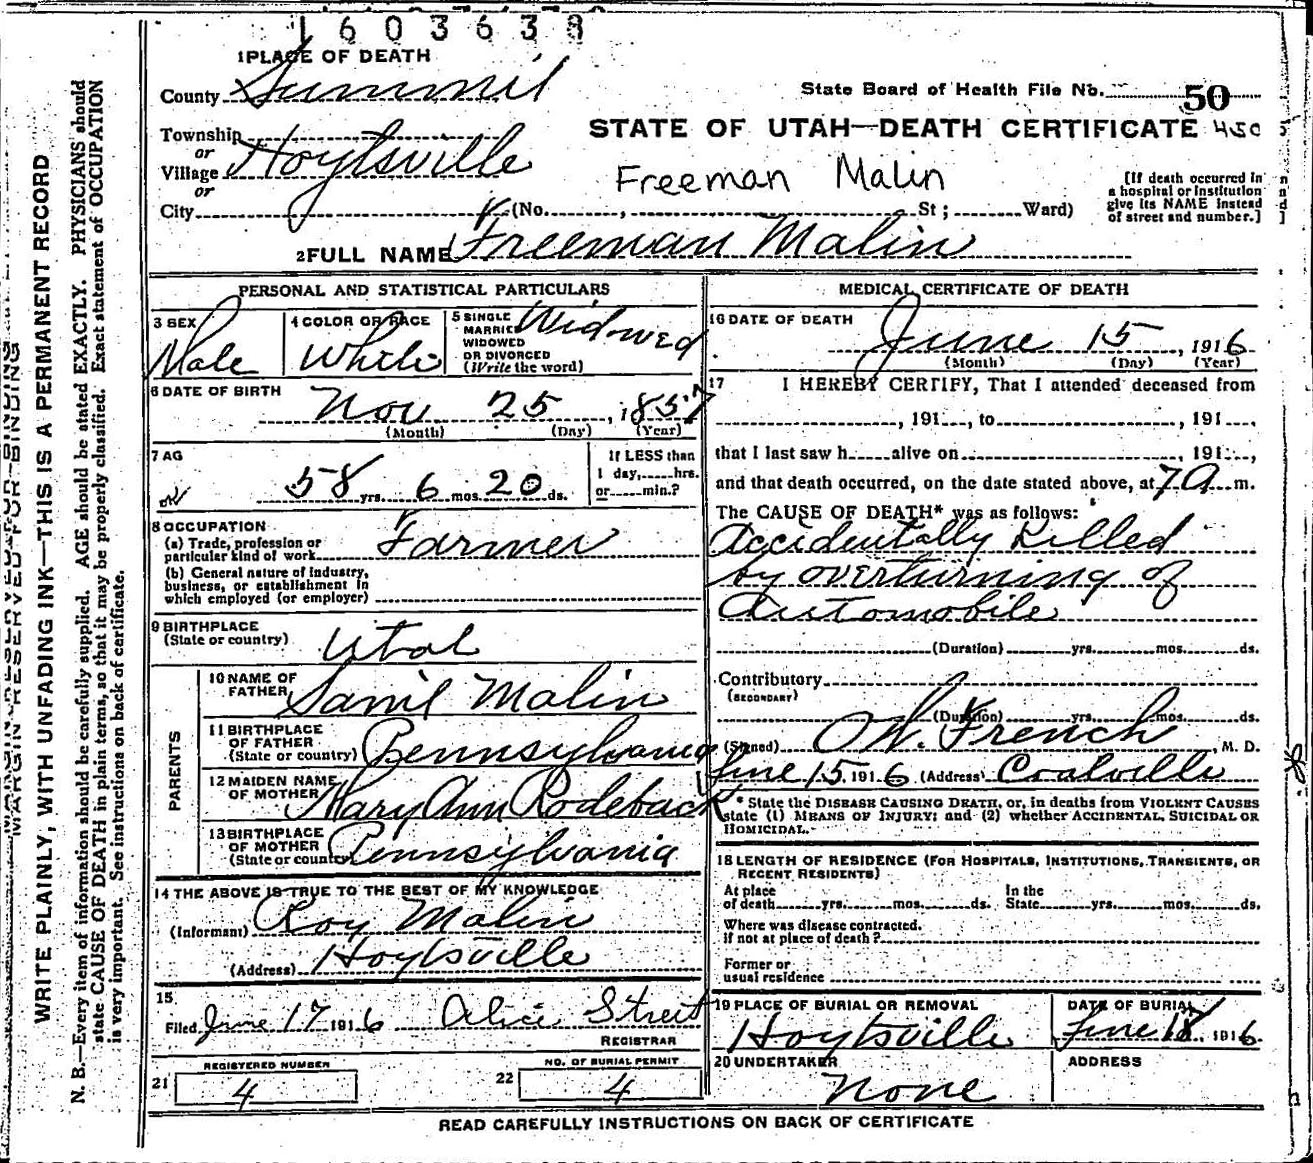 1603638
1 PLACE OF DEATH
County Summit
State Board of Health File No. 50
STATE OF UTAH—DEATH CERTIFICATE 450
Township
or
Village Hoytsville
or
City (No. , St ; Ward)
Freeman Malin
[If death occurred in
a hospital or institution
give its NAME instead
of street and number.]
2 FULL NAME Freeman Malin
PERSONAL AND STATISTICAL PARTICULARS
3 SEX Male
4 COLOR OR RACE White
5 SINGLE
MARRIED
WIDOWED
OR DIVORCED
(Write the word) Widowed
6 DATE OF BIRTH
Nov 25, 1857
(Month) (Day) (Year)
7 AG
58 yrs. 6 mos. 20 ds.
If LESS than
1 day, hrs.
or min.?
8 OCCUPATION
(a) Trade, profession or
particular kind of work Farmer
(b) General nature of industry,
business, or establishment in
which employed (or employer)
9 BIRTHPLACE
(State or country) Utah
PARENTS
10 NAME OF
FATHER Saml Malin
11 BIRTHPLACE
OF FATHER
(State or country) Pennsylvania
12 MAIDEN NAME
OF MOTHER Mary Ann Rodeback
13 BIRTHPLACE
OF MOTHER
(State or country) Pennsylvania
14 THE ABOVE IS TRUE TO THE BEST OF MY KNOWLEDGE
(Informant) Roy Malin
(Address) Hoytsville
15
Filed June 17 1916 Alice Street
REGISTRAR
REGISTERED NUMBER
21 4
NO. OF BURIAL PERMIT
22 4
MEDICAL CERTIFICATE OF DEATH
16 DATE OF DEATH
June 15, 1916
(Month) (Day) (Year)
17 I HEREBY CERTIFY, That I attended deceased from
, 191 , to , 191 ,
that I last saw h alive on , 191 ,
and that death occurred, on the date stated above, at 7 A m.
The CAUSE OF DEATH* was as follows:
Accidentally Killed
by overturning of
Automobile
(Duration) yrs. mos. ds.
Contributory
(SECONDARY)
(Duration) yrs. mos. ds.
(Signed) O W. French, M. D.
June 15, 1916 (Address) Coalville
* State the DISEASE CAUSING DEATH, or, in deaths from VIOLENT CAUSES
state (1) MEANS OF INJURY; and (2) whether ACCIDENTAL, SUICIDAL OR
HOMICIDAL.
18 LENGTH OF RESIDENCE (FOR HOSPITALS, INSTITUTIONS, TRANSIENTS, OR
RECENT RESIDENTS)
At place
of death yrs. mos. ds.
In the
State yrs. mos. ds.
Where was disease contracted.
if not at place of death?
Former or
usual residence
19 PLACE OF BURIAL OR REMOVAL
Hoytsville
DATE OF BURIAL
June 18, 1916
20 UNDERTAKER
none
ADDRESS
READ CAREFULLY INSTRUCTIONS ON BACK OF CERTIFICATE
MARGIN RESERVED FOR BINDING
WRITE PLAINLY, WITH UNFADING INK—THIS IS A PERMANENT RECORD
N. B.—Every item of information should be carefully supplied. AGE should be stated EXACTLY. PHYSICIANS should
state CAUSE OF DEATH in plain terms, so that it may be properly classified. Exact statement of OCCUPATION
is very important. See instructions on back of certificate.